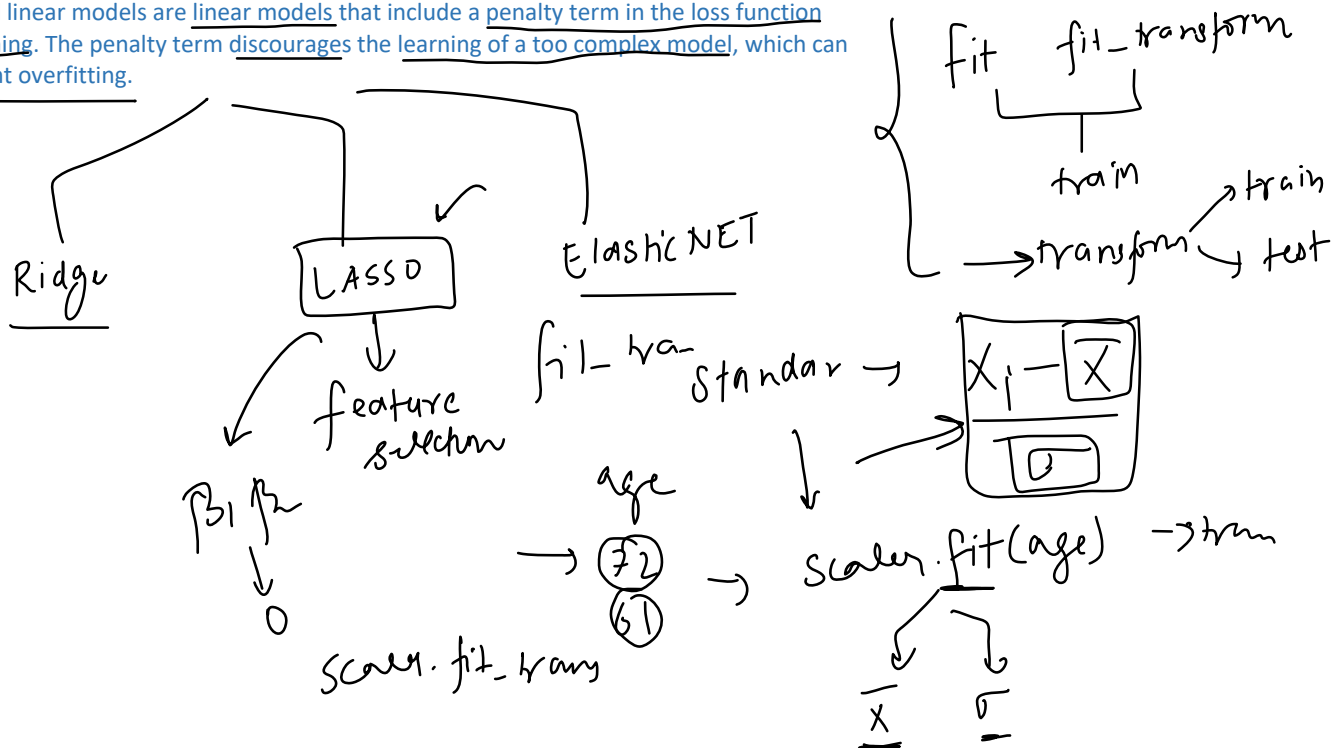 linear models are linear models that include a penalty term in the loss function
ing. The penalty term discourages the learning of a too complex model, which can
nt overfitting.
fit fit_transform
train
transform
train
test
Ridge
LASSO
ElasticNET
feature
selection
β1 β2
0
fit_tra-
Standar
Xi - X̄
σ
age
72
61
scaler.fit(age)
X̄ σ
scaler.fit_trans